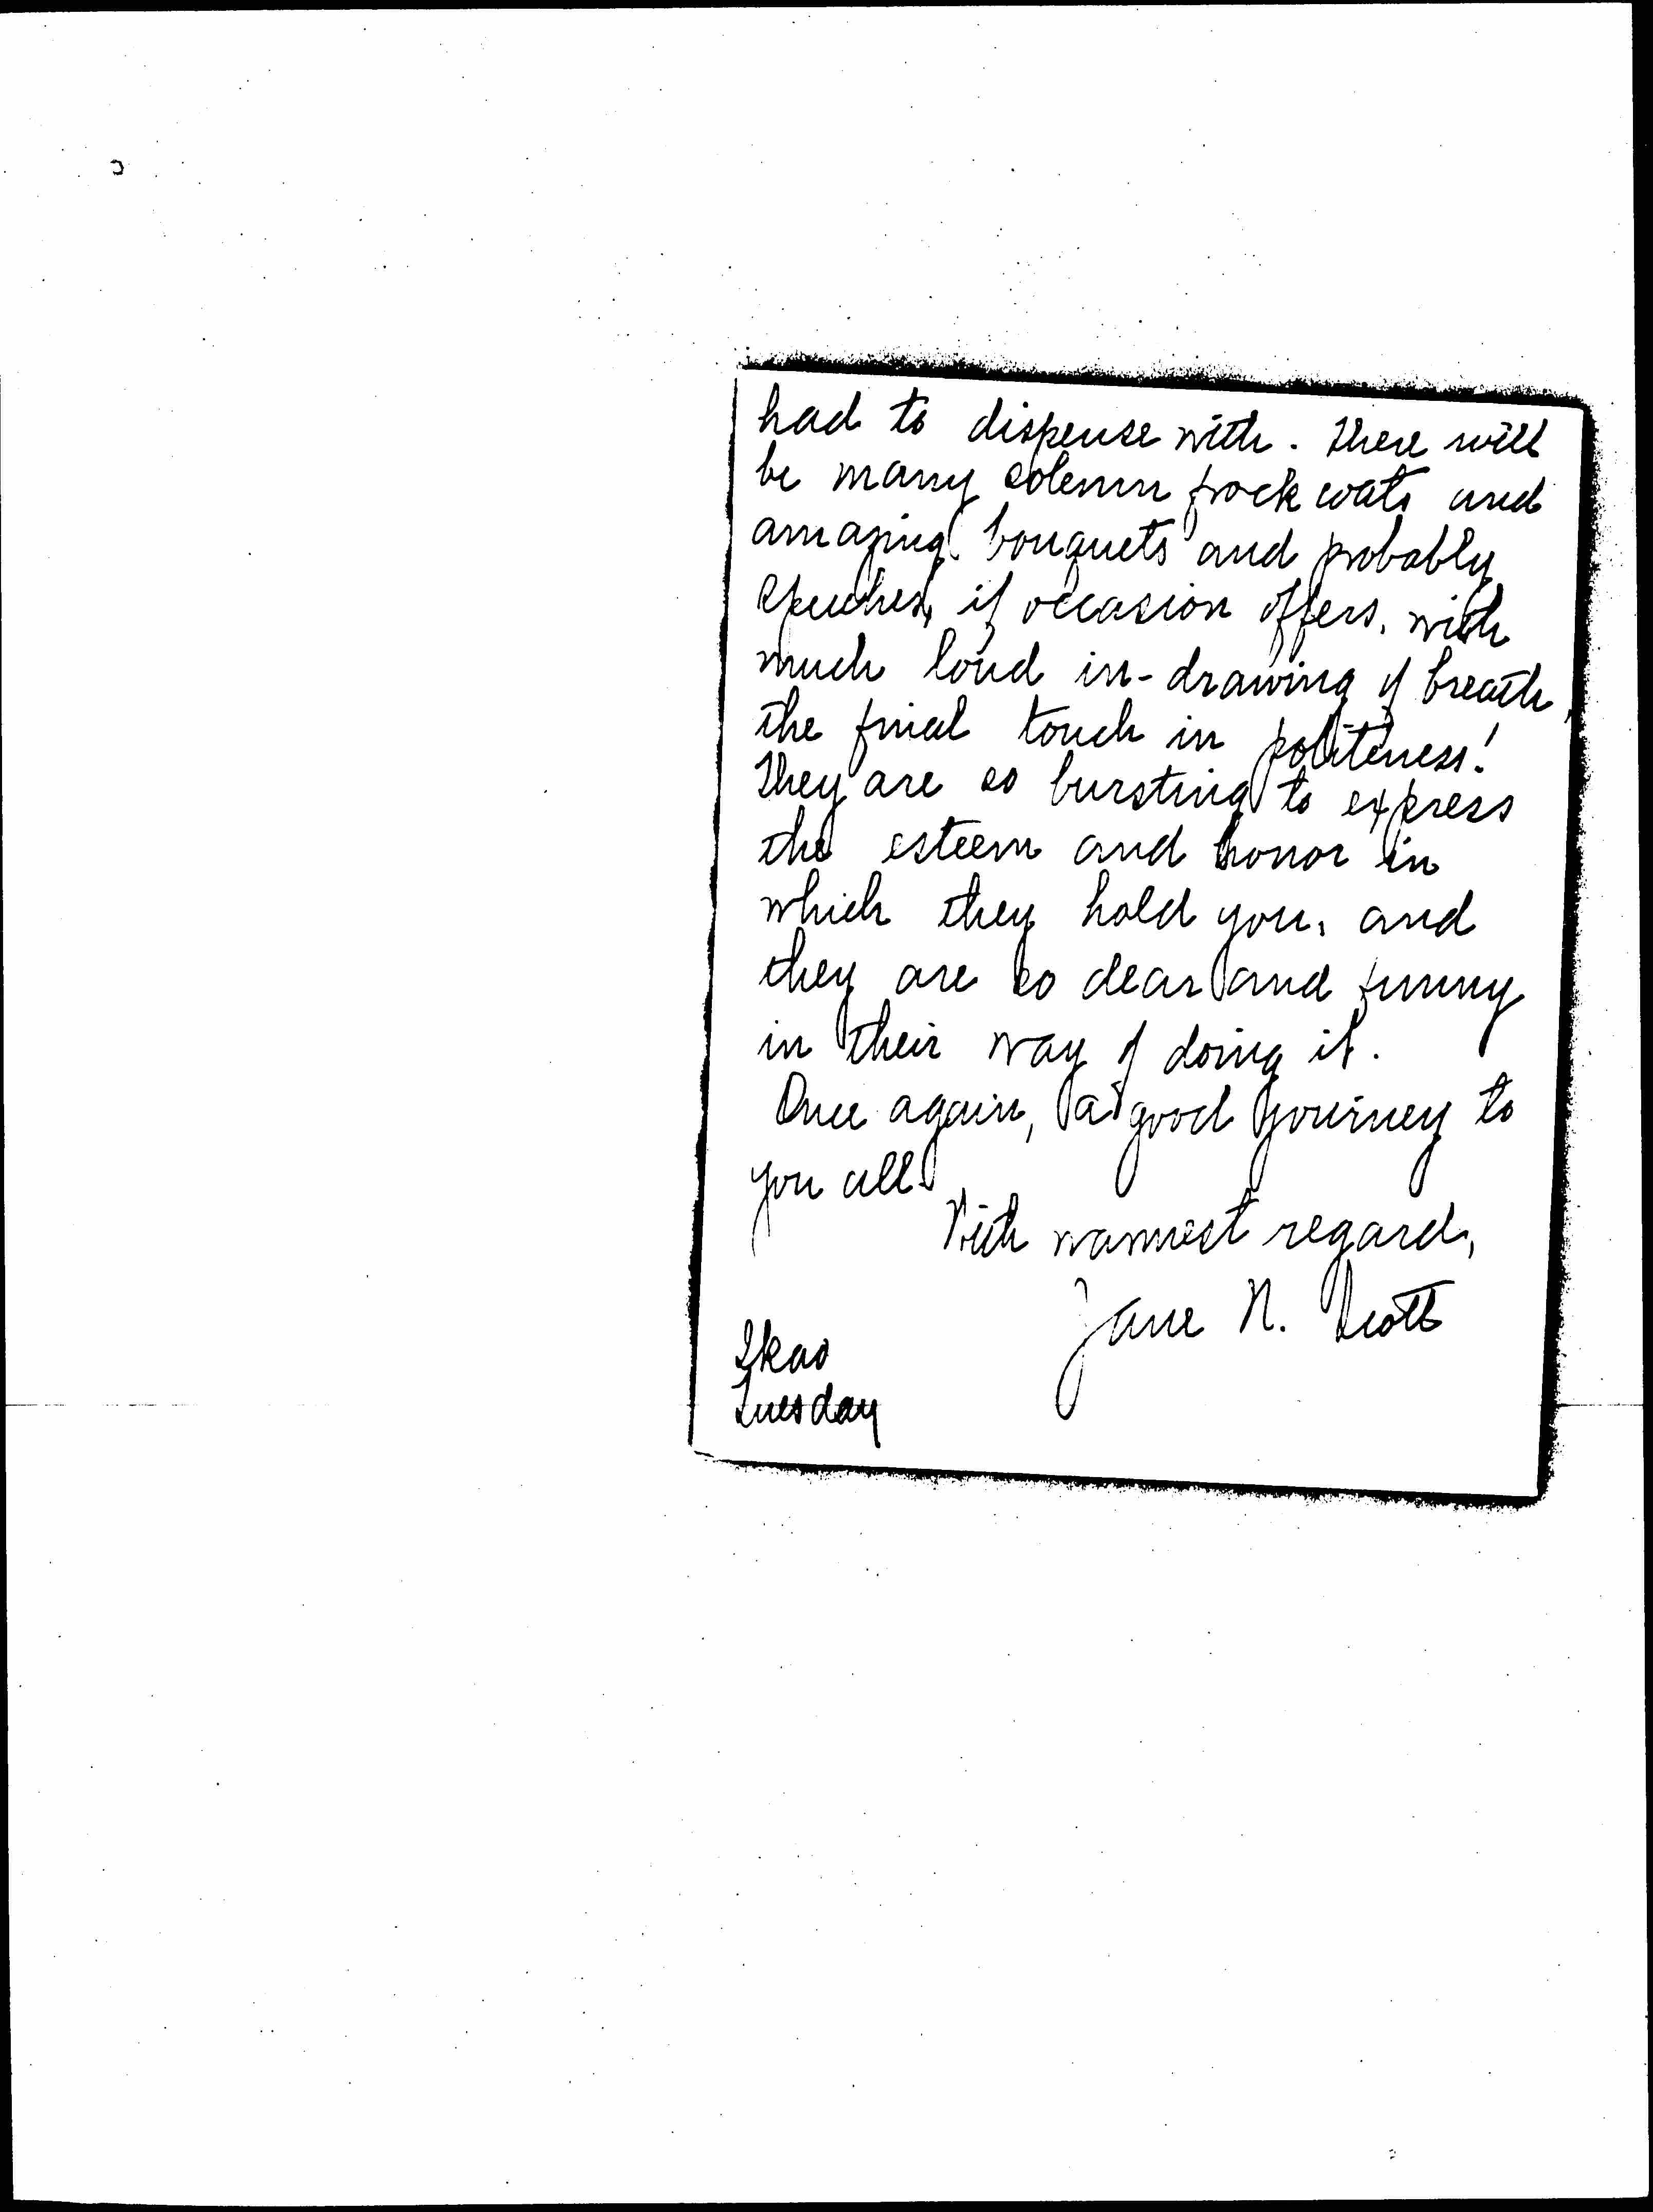 had to dispense with. There will
be many solemn frock coats and
amazing bouquets and probably
speeches, if occasion offers, with
much loud in-drawing of breath,
the final touch in politeness!
They are so bursting to express
the esteem and honor in
which they hold you, and
they are so dear and funny
in their way of doing it.
Once again, a good journey to
you all.
With warmest regard,
Jane N. Scott
Ikao
Tuesday